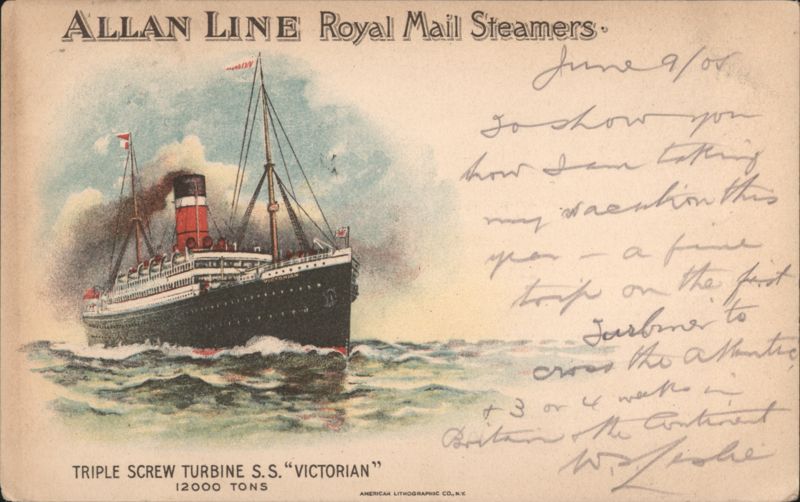 ALLAN LINE Royal Mail Steamers.
June 9/05
To show you
how I am taking
my vacation this
year — a fine
trip on the first
Turbiner to
cross the Atlantic
+ 3 or 4 weeks in
Britain & the Continent
W. S. Leslie
VICTORIAN
TRIPLE SCREW TURBINE S.S. "VICTORIAN"
12000 TONS
AMERICAN LITHOGRAPHIC CO., N.Y.